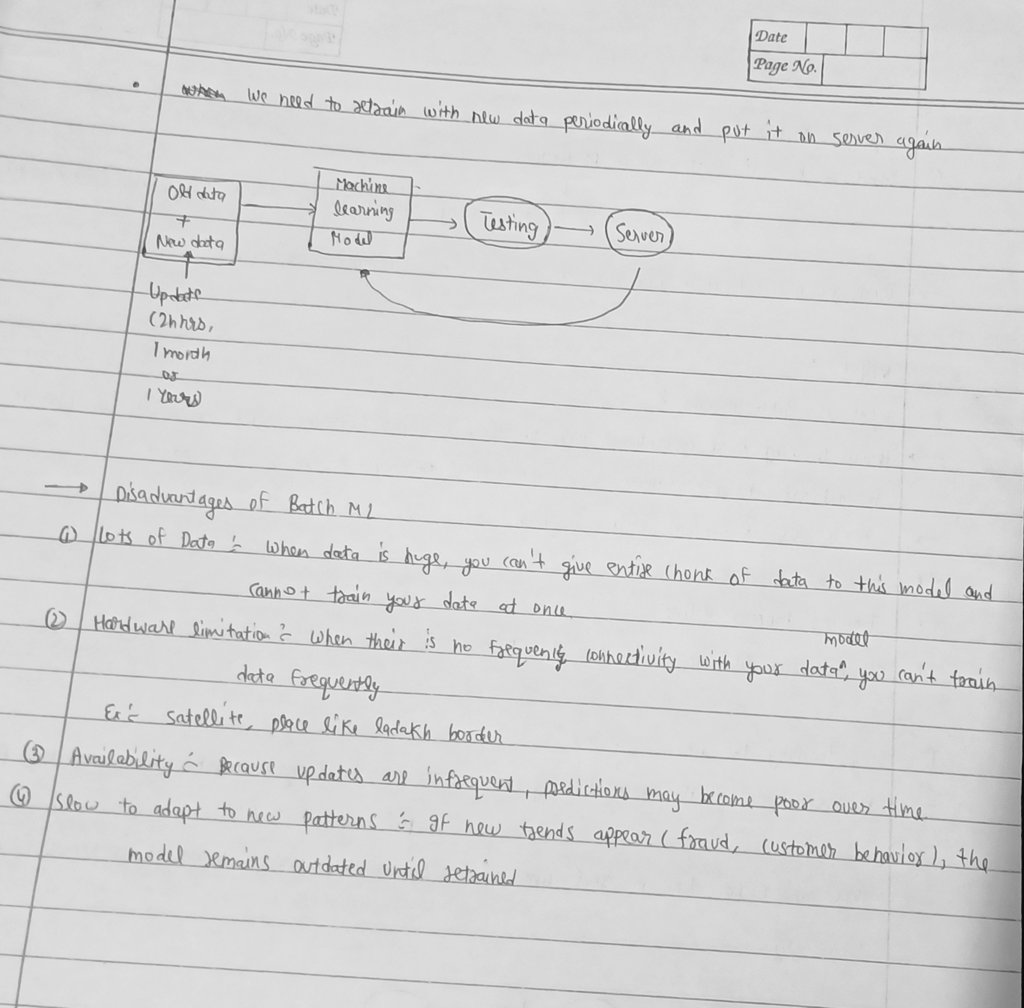 Date
Page No.
• We need to retrain with new data periodically and put it on server again
Old data
+
New data
Machine
learning
Model
Testing
Server
Update
(2hhrs,
1 month
or
1 Years)
→ Disadvantages of Batch ML
(1) Lots of Data :- When data is huge, you can't give entire chonk of data to this model and
cannot train your data at once
(2) Hardware limitation :- When their is no frequently connectivity with your data model, you can't train
data frequently
Ex :- satellite, place like ladakh border
(3) Availability :- Because updates are infrequent, predictions may become poor over time
(4) Slow to adapt to new patterns :- If new trends appear (fraud, customer behavior), the
model remains outdated until retrained